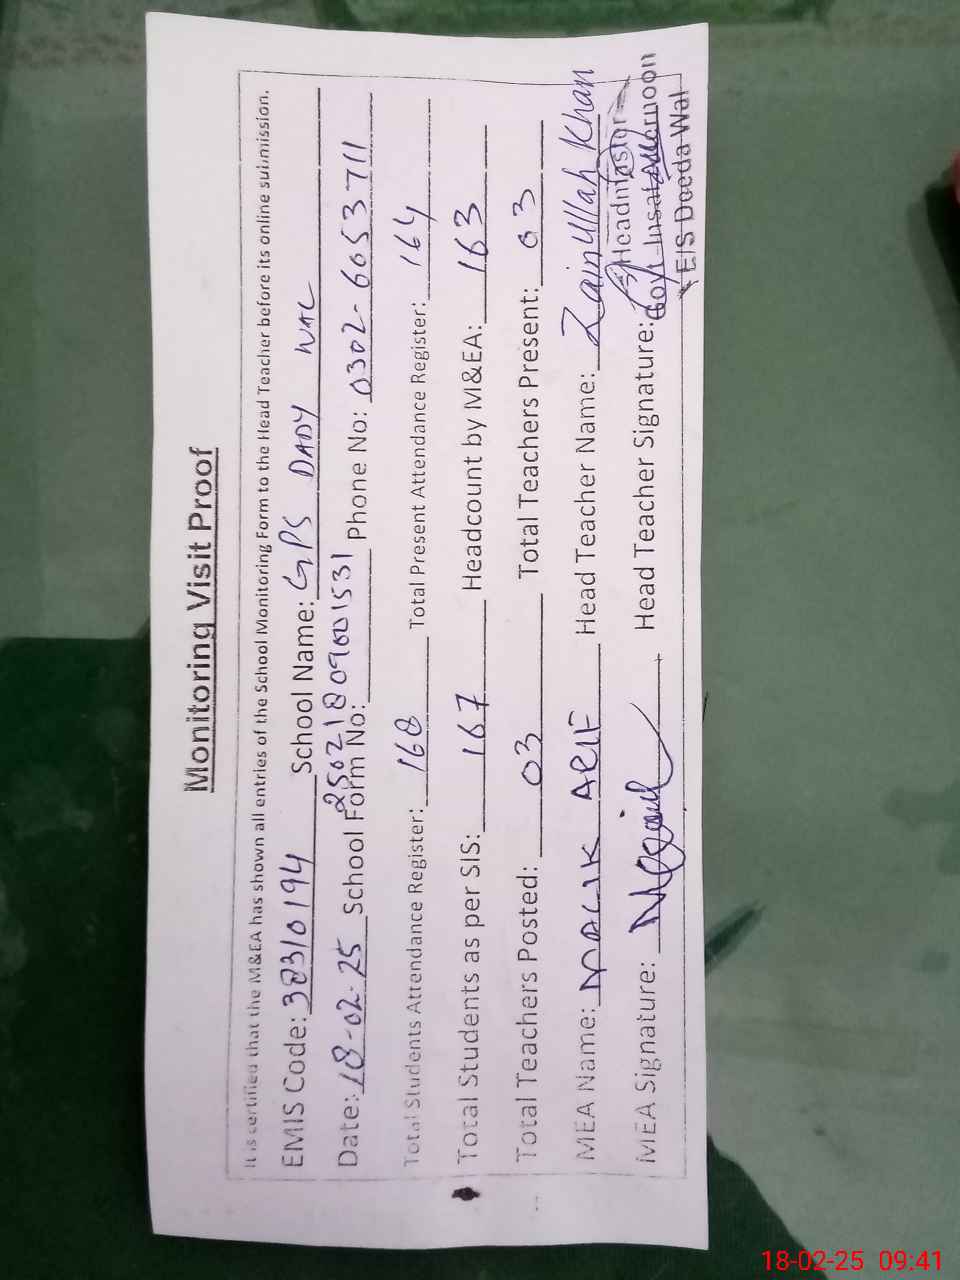 Monitoring Visit Proof
It is certified that the M&EA has shown all entries of the School Monitoring Form to the Head Teacher before its online submission.
EMIS Code: 38310194 School Name: GPS DADY WAL
Date: 18-02-25 School Form No: 25021809001531 Phone No: 0302-6053711
Total Students Attendance Register: 168 Total Present Attendance Register: 164
Total Students as per SIS: 167 Headcount by M&EA: 163
Total Teachers Posted: 03 Total Teachers Present: 03
MEA Name: MALIK ARIF Head Teacher Name: Zainullah Khan
MEA Signature: Head Teacher Signature:
Headmaster
Govt. Insaf Afternoon
E/S Doeda Wal
18-02-25 09:41